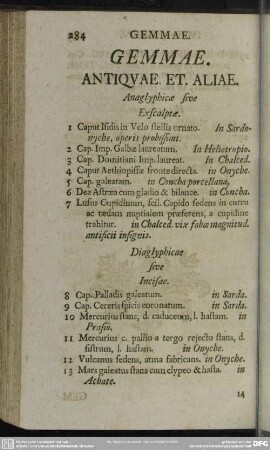 284 GEMMAE.
GEMMAE.
ANTIQVAE. ET. ALIAE.
Anaglyphicæ sive
Exscalptæ.
1 Caput Isidis in Velo stellis ornato. In Sardo-
nyche, operis probissimi.
2 Cap. Imp. Galbæ laureatum. In Heliotropio.
3 Cap. Domitiani Imp. laureat. In Chalced.
4 Caput Aethiopissæ fronte directa. in Onyche.
5 Cap. galeatum. in Concha porcellana.
6 Dea Astræa cum gladio & bilance. in Concha.
7 Lusus Cupidinum, scil. Cupido sedens in curru
ac tædam nuptialem præferens, a cupidine
trahitur. in Chalced. vix fabæ magnitud.
antificii insignis.
Diaglyphicae
sive
Incisae.
8 Cap. Palladis galeatum. in Sarda.
9 Cap. Cereris spicis coronatum. in Sarda.
10 Mercurius stans, d. caduceum, l. hastam. in
Prasio.
11 Mercurius c. pallio a tergo rejecto stans, d.
sistrum, l. hastam. in Onyche.
12 Vulcanus sedens, arma fabricans. in Onyche.
13 Mars galeatus stans cum clypeo & hasta. in
Achate.
14